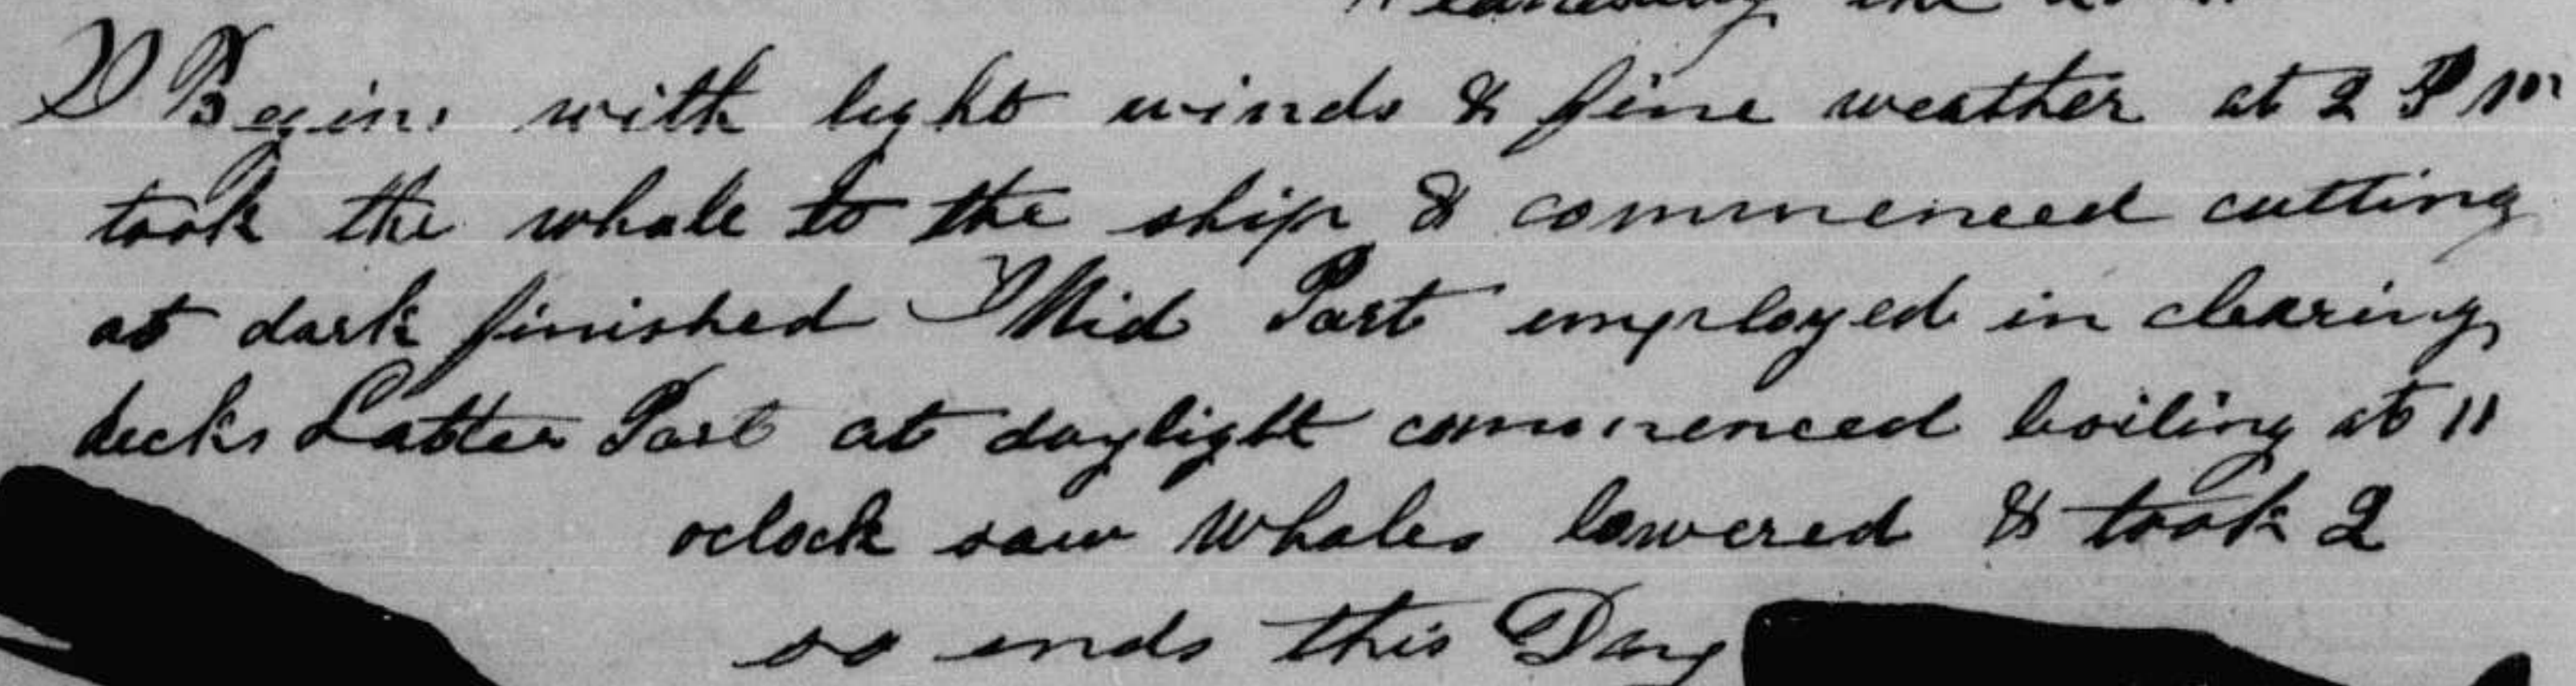 Wednesday the
Begins with light winds & fine weather at 2 P M
took the whale to the ship & commenced cutting
at dark finished Mid Part employed in clearing
decks Latter Part at daylight commenced boiling at 11
oclock saw Whales lowered & took 2
so ends this Day